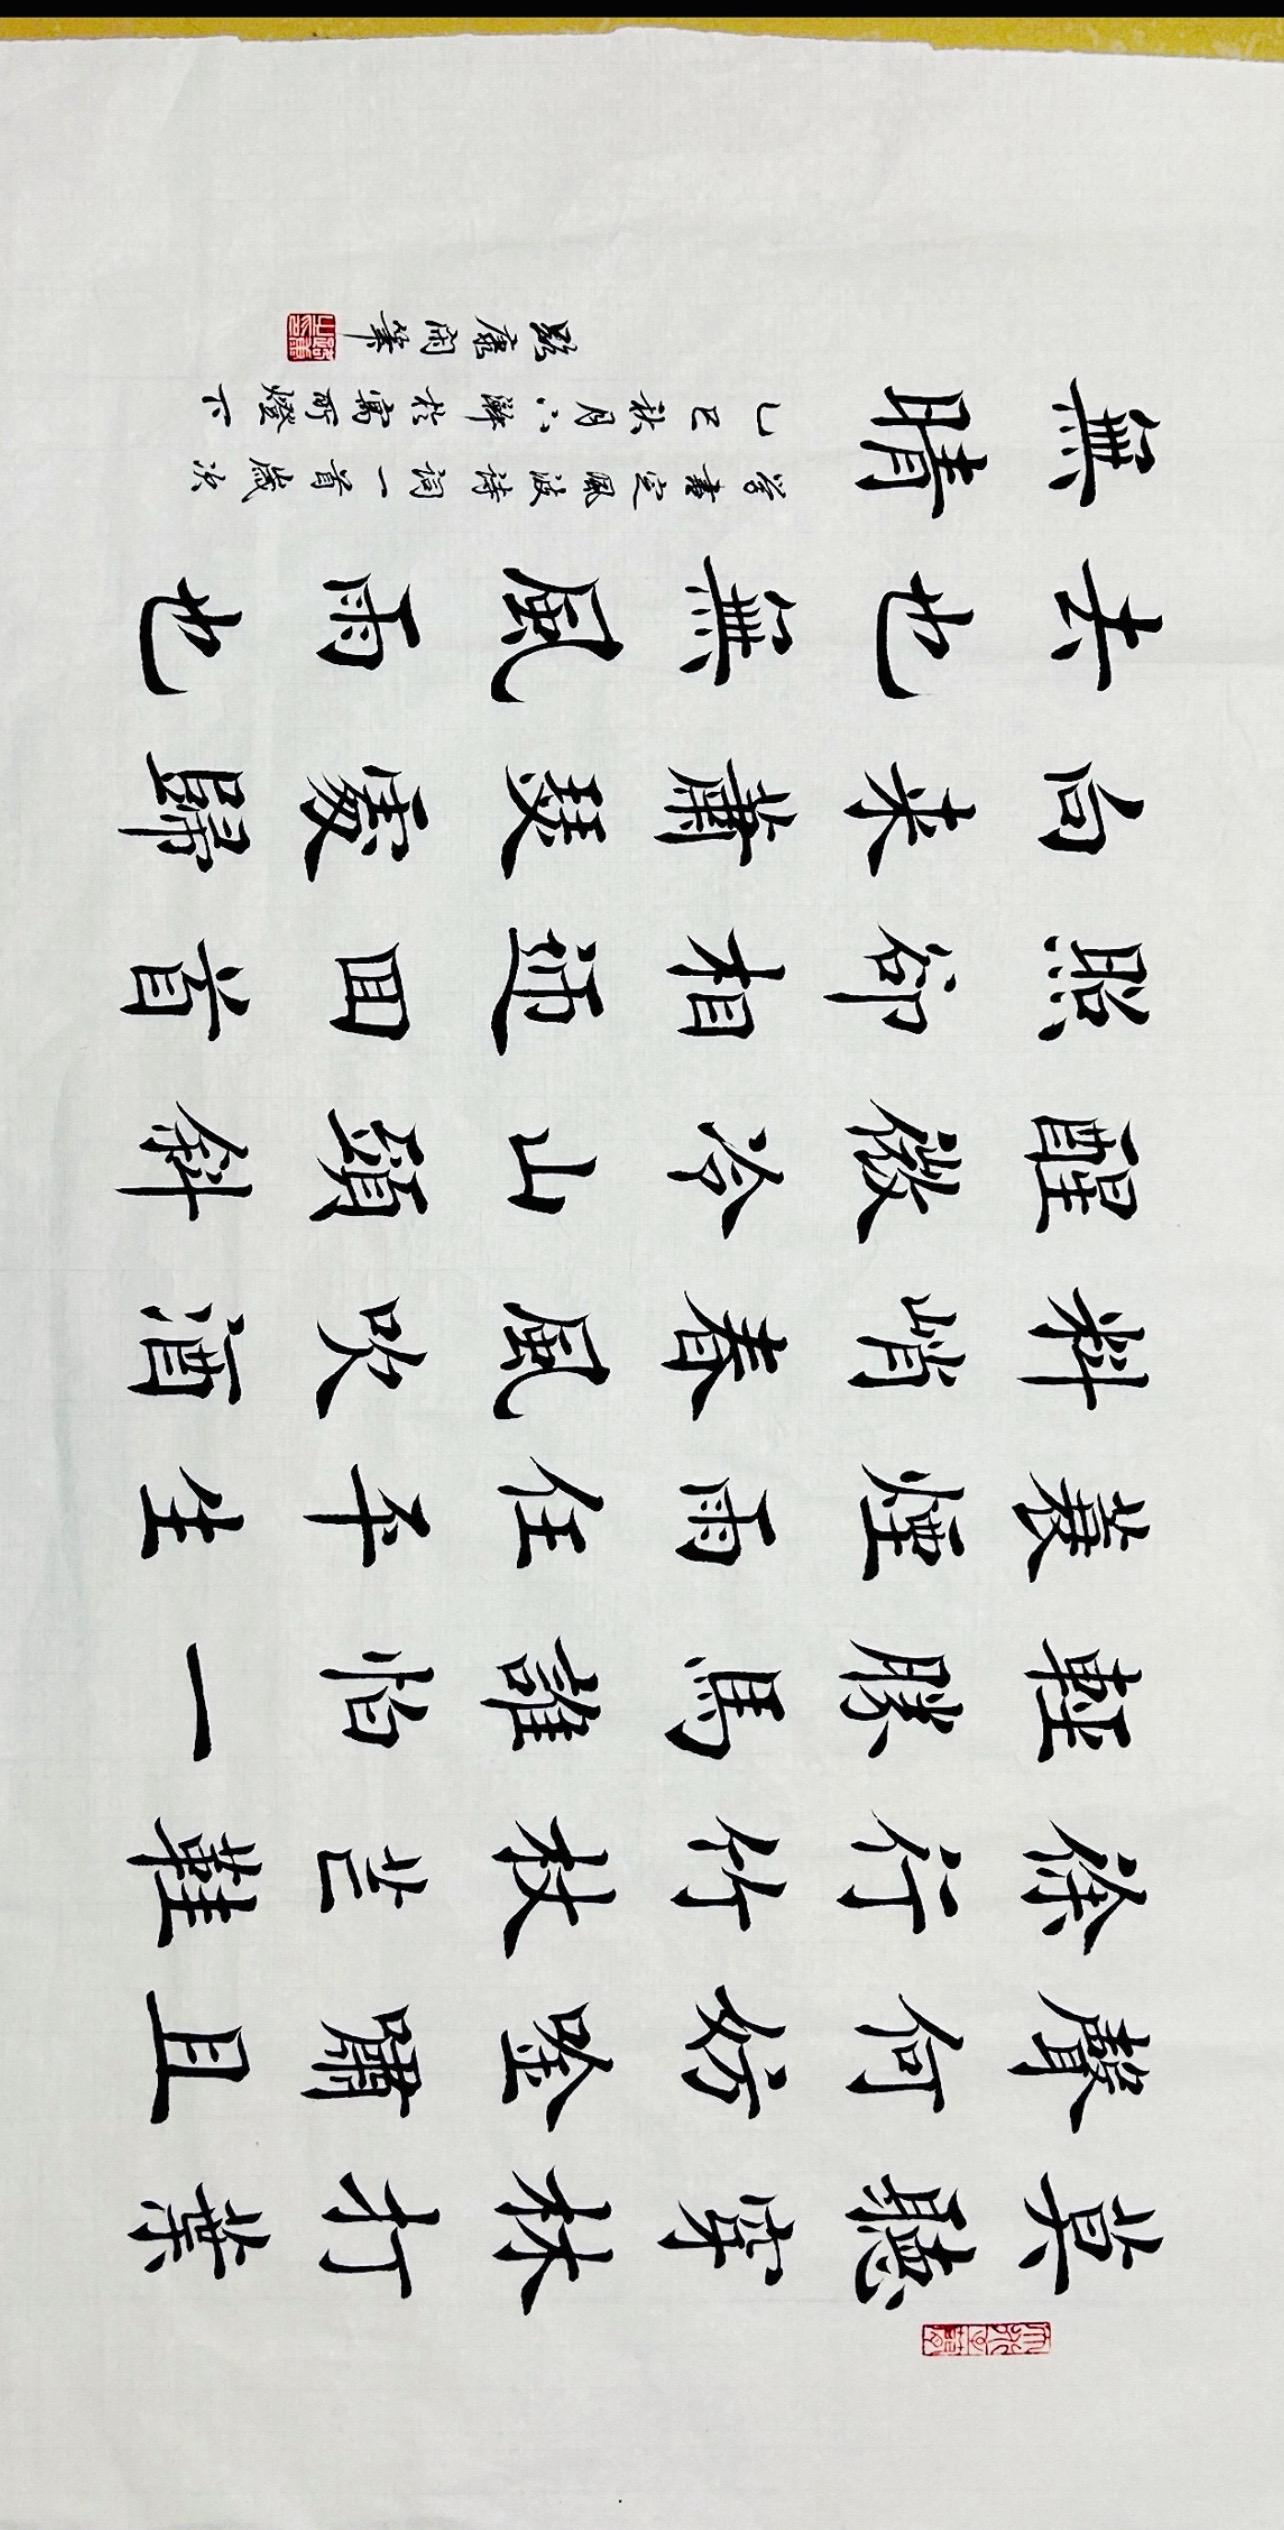 莫聽穿林打葉
聲何妨吟嘯且
徐行竹杖芒鞋
輕勝馬誰怕一
蓑煙雨任平生
料峭春風吹酒
醒微冷山頭斜
照卻相迎回首
向来蕭瑟處歸
去也無風雨也
無晴
書定風波詩詞一首歲次
乙巳秋月於寓所燈下
閑筆